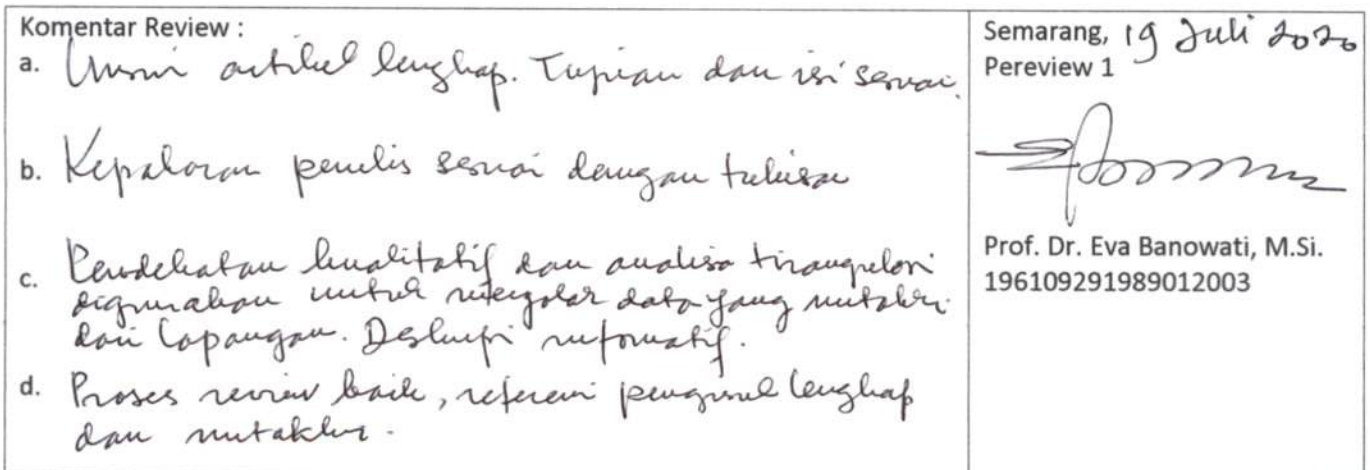 Komentar Review :
a. Unsur artikel lengkap. Tujuan dan isi sesuai.
b. Kepakaran penulis sesuai dengan tulisan
c. Pendekatan kualitatif dan analisa triangulasi
digunakan untuk mengolah data yang mutakhir
dari lapangan. Deskripsi informatif.
d. Proses review baik, referensi pengusul lengkap
dan mutakhir.
Semarang, 19 Juli 2020
Pereview 1
Prof. Dr. Eva Banowati, M.Si.
196109291989012003